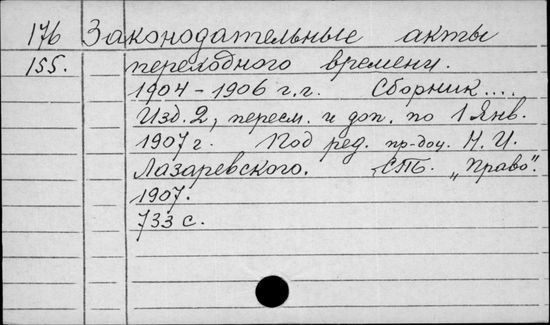 176 Законодательные акты
155. переходного времени.
1904-1906 г.г. Сборник....
Изд. 2, пересм. и доп. по 1 Янв.
1907 г. Под ред. пр-доц. Н. И.
Лазаревского. СПб. „Право".
1907.
733 с.